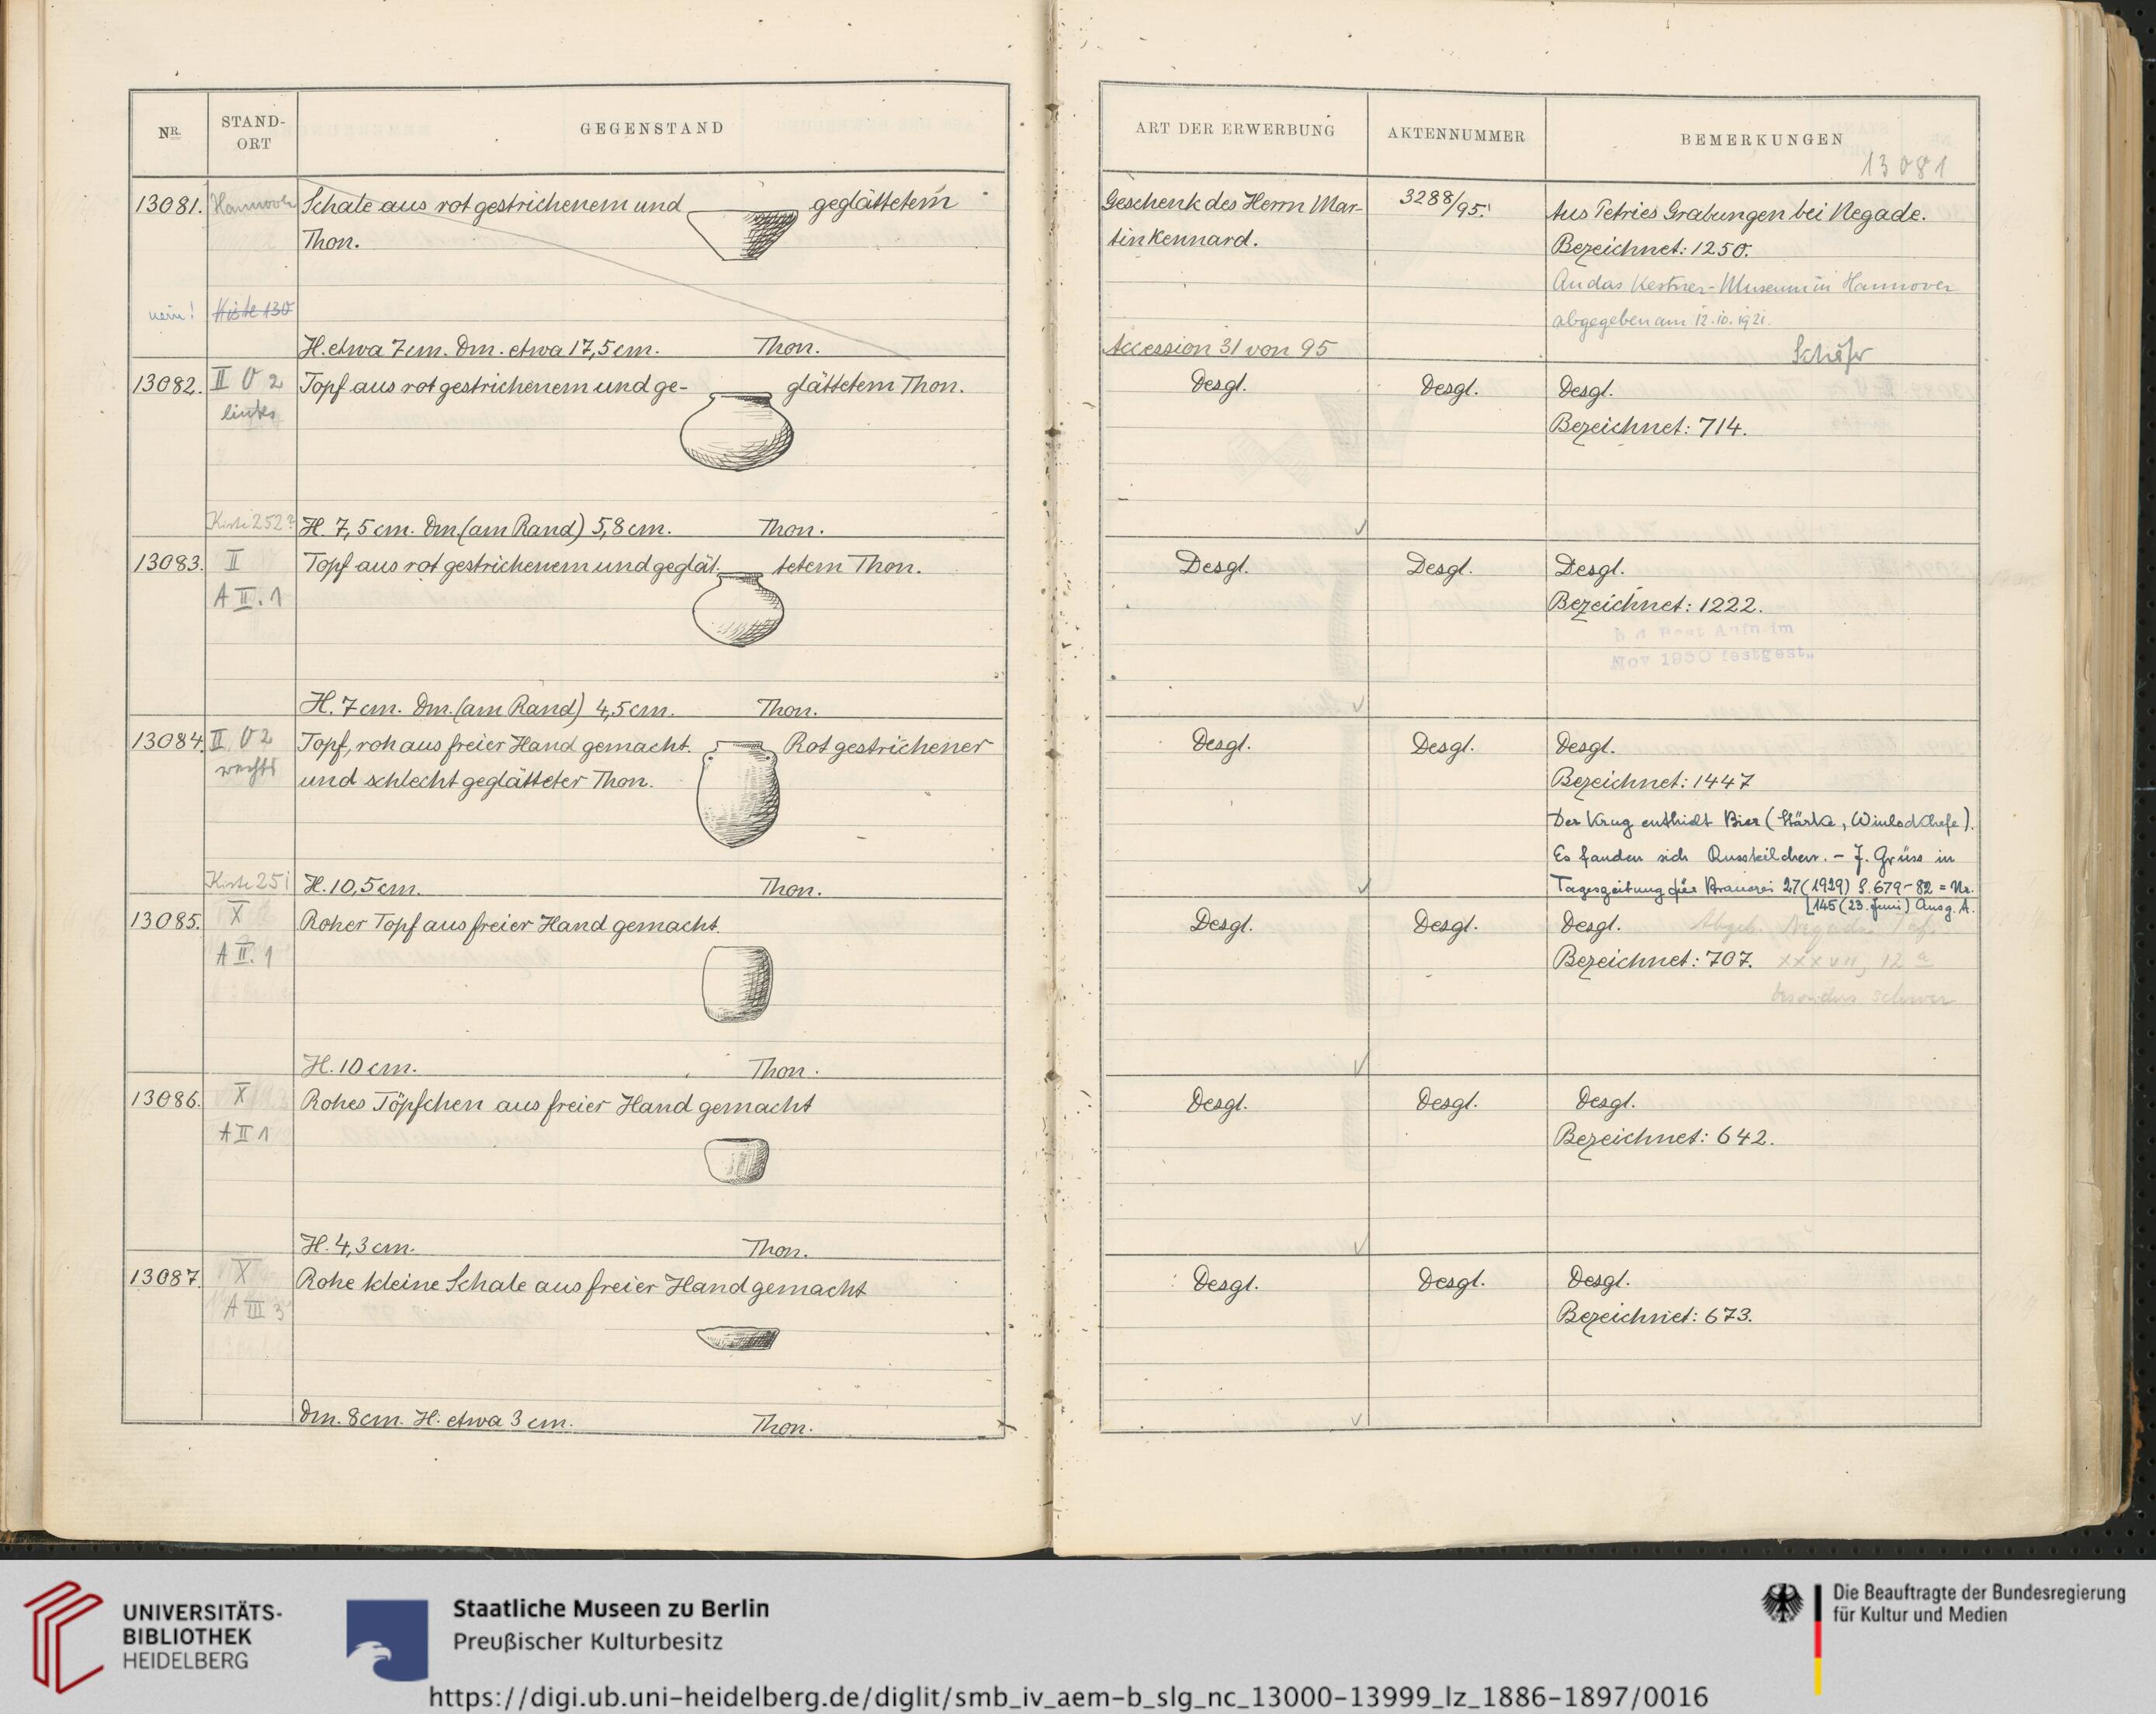 NR.
STAND-
ORT
GEGENSTAND
ART DER ERWERBUNG
AKTENNUMMER
BEMERKUNGEN
13081
13081. Hannover Schale aus rot gestrichenem und geglättetem
Thon.
nein! Kiste 130
H. etwa 7 cm. Dm. etwa 17,5 cm. Thon.
Geschenk des Herrn Mar-
tin Kennard.
Accession 31 von 95
3288/95.
Aus Petries Grabungen bei Negade.
Bezeichnet: 1250.
An das Kestner-Museum in Hannover
abgegeben am 12.10.1921.
Schäfer
13082. II V 2 Topf aus rot gestrichenem und ge- glättetem Thon.
links
Kiste 252? H. 7,5 cm. Dm. (am Rand) 5,8 cm. Thon.
Desgl. Desgl. Desgl.
Bezeichnet: 714.
13083. II Topf aus rot gestrichenem und geglät- tetem Thon.
A II. 1
H. 7 cm. Dm. (am Rand) 4,5 cm. Thon.
Desgl. Desgl. Desgl.
Bezeichnet: 1222.
Nov 1950 festgest.
13084. II V 2 Topf, roh aus freier Hand gemacht. Rot gestrichener
rechts und schlecht geglätteter Thon.
Kiste 251 H. 10,5 cm. Thon.
Desgl. Desgl. Desgl.
Bezeichnet: 1447
Der Krug enthielt Bier (Stärke,
Es fanden sich - J. Grüss in
Tageszeitung für Brauerei 27 (1929) S. 679-82 = Nr.
145 (23. Juni) Ausg. A.
13085. X Roher Topf aus freier Hand gemacht.
A II. 1
H. 10 cm. Thon.
Desgl. Desgl. Desgl. Abgeb. Negade Taf.
Bezeichnet: 707. XXXVII, 12 a
besonders schwer
13086. X Rohes Töpfchen aus freier Hand gemacht
A II 1
H. 4,3 cm. Thon.
Desgl. Desgl. Desgl.
Bezeichnet: 642.
13087. X Rohe kleine Schale aus freier Hand gemacht
A III 3
Dm. 8 cm. H. etwa 3 cm. Thon.
Desgl. Desgl. Desgl.
Bezeichnet: 673.
UNIVERSITÄTS-
BIBLIOTHEK
HEIDELBERG
Staatliche Museen zu Berlin
Preußischer Kulturbesitz
Die Beauftragte der Bundesregierung
für Kultur und Medien
https://digi.ub.uni-heidelberg.de/diglit/smb_iv_aem-b_slg_nc_13000-13999_lz_1886-1897/0016